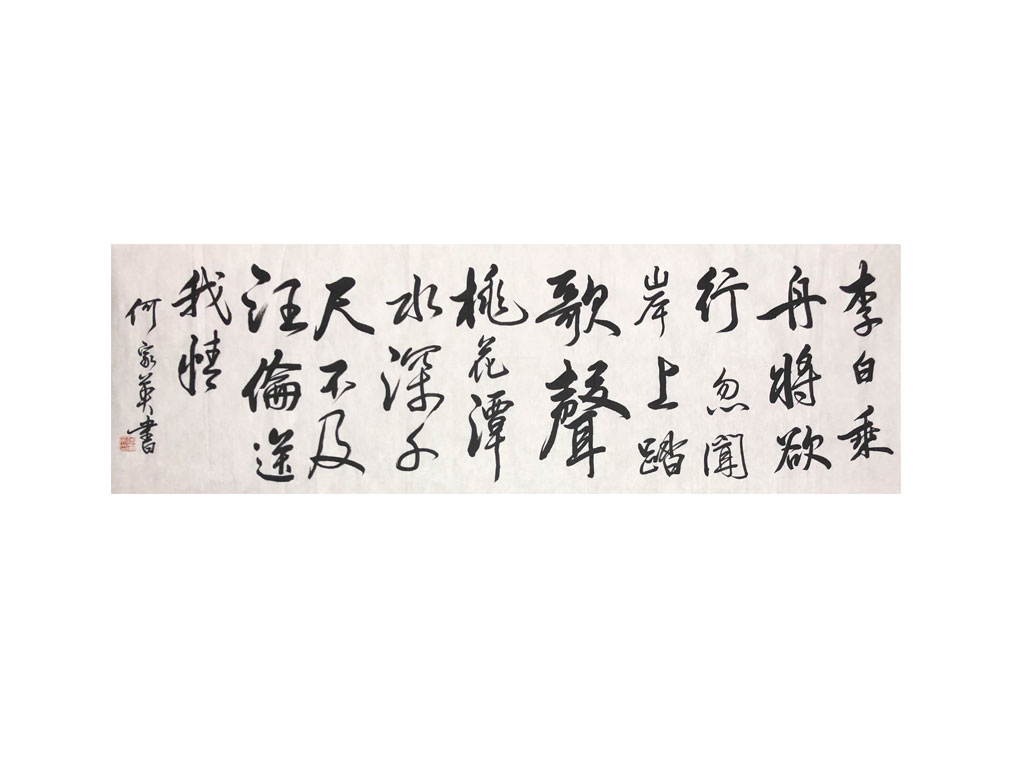 李白乘
舟將欲
行忽聞
岸上踏
歌聲
桃花潭
水深千
尺不及
汪倫送
我情
何家英書